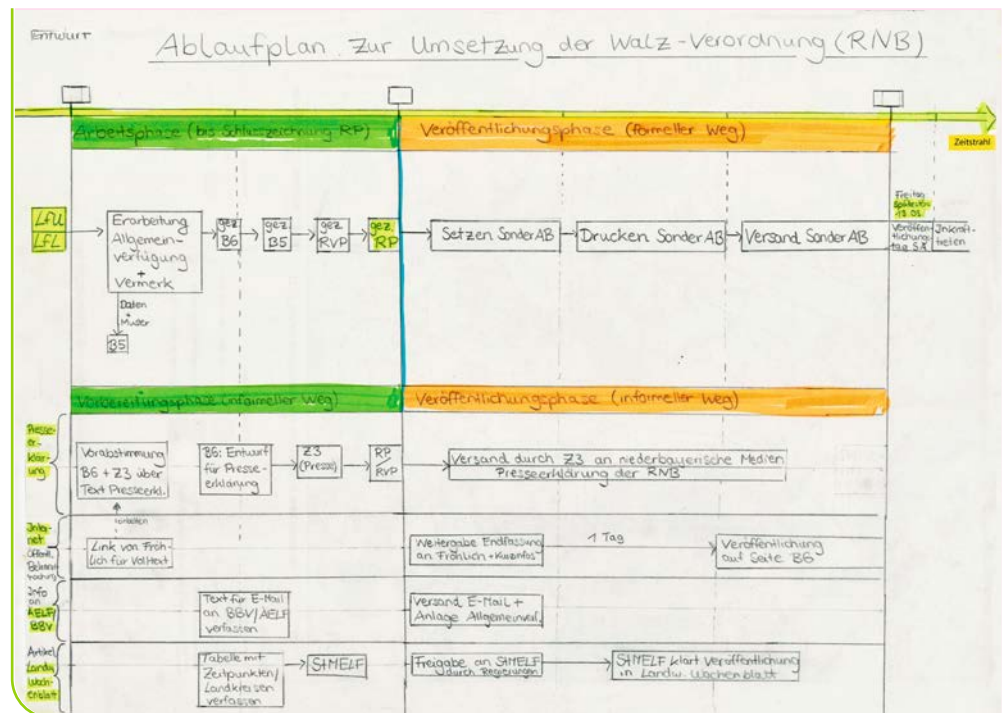 Entwurf
Ablaufplan zur Umsetzung der Walz-Verordnung (RNB)
Arbeitsphase (bis Schlusszeichnung RP)
Veröffentlichungsphase (formeller Weg)
Zeitstrahl
LfU
LFL
Erarbeitung
Allgemein-
verfügung
+
Vermerk
gez
B6
gez
B5
gez
RVP
gez.
RP
Setzen SonderAB
Drucken SonderAB
Versand SonderAB
Freitag
spätestens
13.03.
Veröffent-
lichungs-
tag SA
Inkraft-
treten
Daten
+
Muster
B5
Vorbereitungsphase (informeller Weg)
Veröffentlichungsphase (informeller Weg)
Presse-
er-
klär-
ung
Vorabstimmung
B6 + Z3 über
Text Presseerkl.
B6: Entwurf
für Presse-
erklärung
Z3
(Presse)
RP
RVP
Versand durch Z3 an niederbayerische Medien
Presseerklärung der RNB
Inter-
net
Öffentl.
Bekannt-
machung
Link von Fröh-
lich für Volltext
Weitergabe Endfassung
an Fröhlich + Kurzinfos
1 Tag
Veröffentlichung
auf Seite B6
Info
an
AELF/
BBV
Text für E-Mail
an BBV/AELF
verfassen
Versand E-Mail +
Anlage Allgemeinverf.
Artikel
Landw.
Woch-
enblatt
Tabelle mit
Zeitpunkten/
Landkreisen
verfassen
StMELF
Freigabe an StMELF
durch Regierungen
StMELF klärt Veröffentlichung
in Landw. Wochenblatt